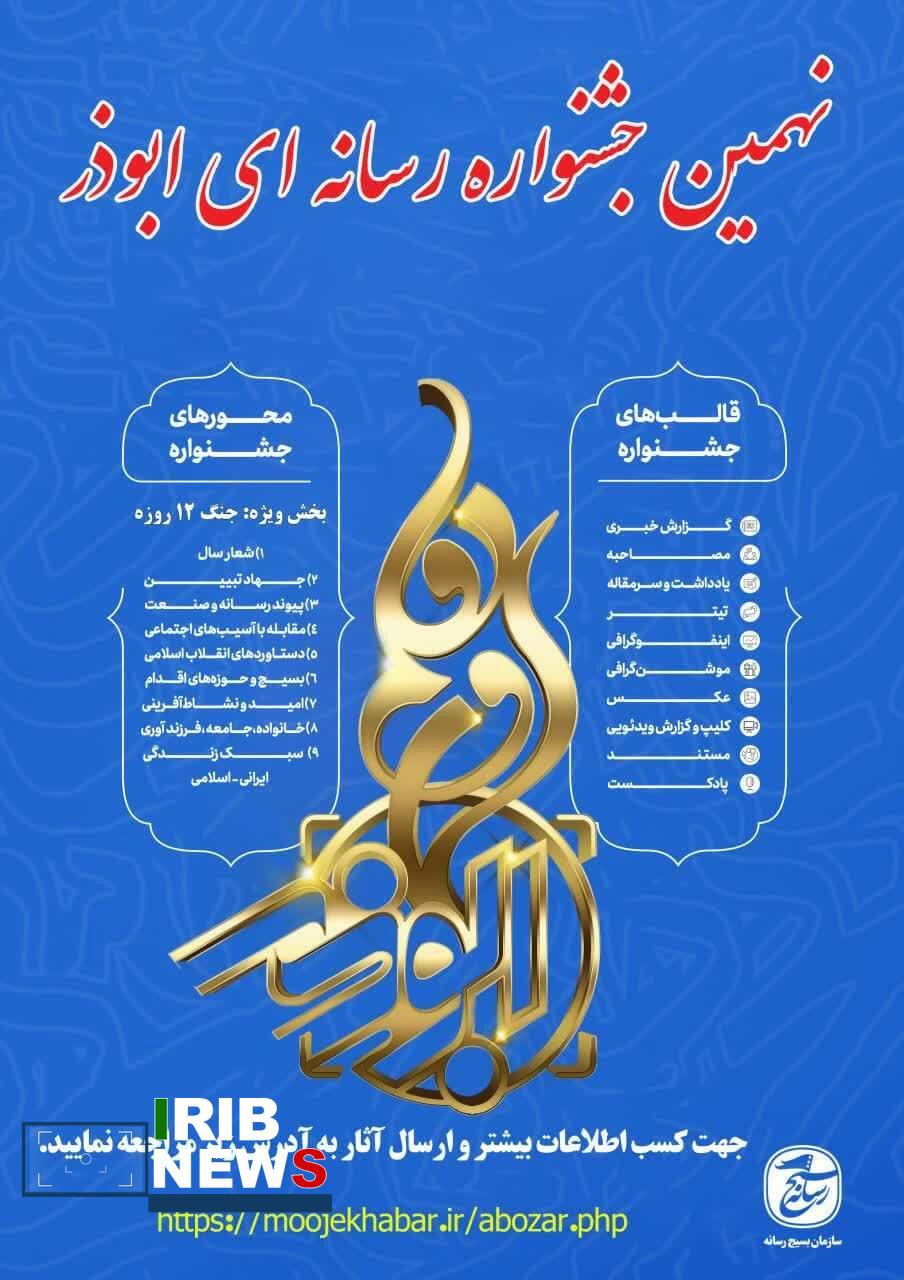 نهمین جشنواره رسانه ای ابوذر
قالب‌های
جشنواره
گزارش خبری
مصاحبه
یادداشت و سرمقاله
تیتر
اینفوگرافی
موشن‌گرافی
عکس
کلیپ و گزارش ویدئویی
مستند
پادکست
محورهای
جشنواره
بخش ویژه: جنگ ۱۲ روزه
۱) شعار سال
۲) جهاد تبیین
۳) پیوند رسانه و صنعت
۴) مقابله با آسیب‌های اجتماعی
۵) دستاوردهای انقلاب اسلامی
۶) بسیج و حوزه‌های اقدام
۷) امید و نشاط‌آفرینی
۸) خانواده، جامعه، فرزندآوری
۹) سبک زندگی
ایرانی - اسلامی
جهت کسب اطلاعات بیشتر و ارسال آثار به آدرس زیر مراجعه نمایید.
IRIB
NEWS
https://moojekhabar.ir/abozar.php
بسیج
رسانه
سازمان بسیج رسانه